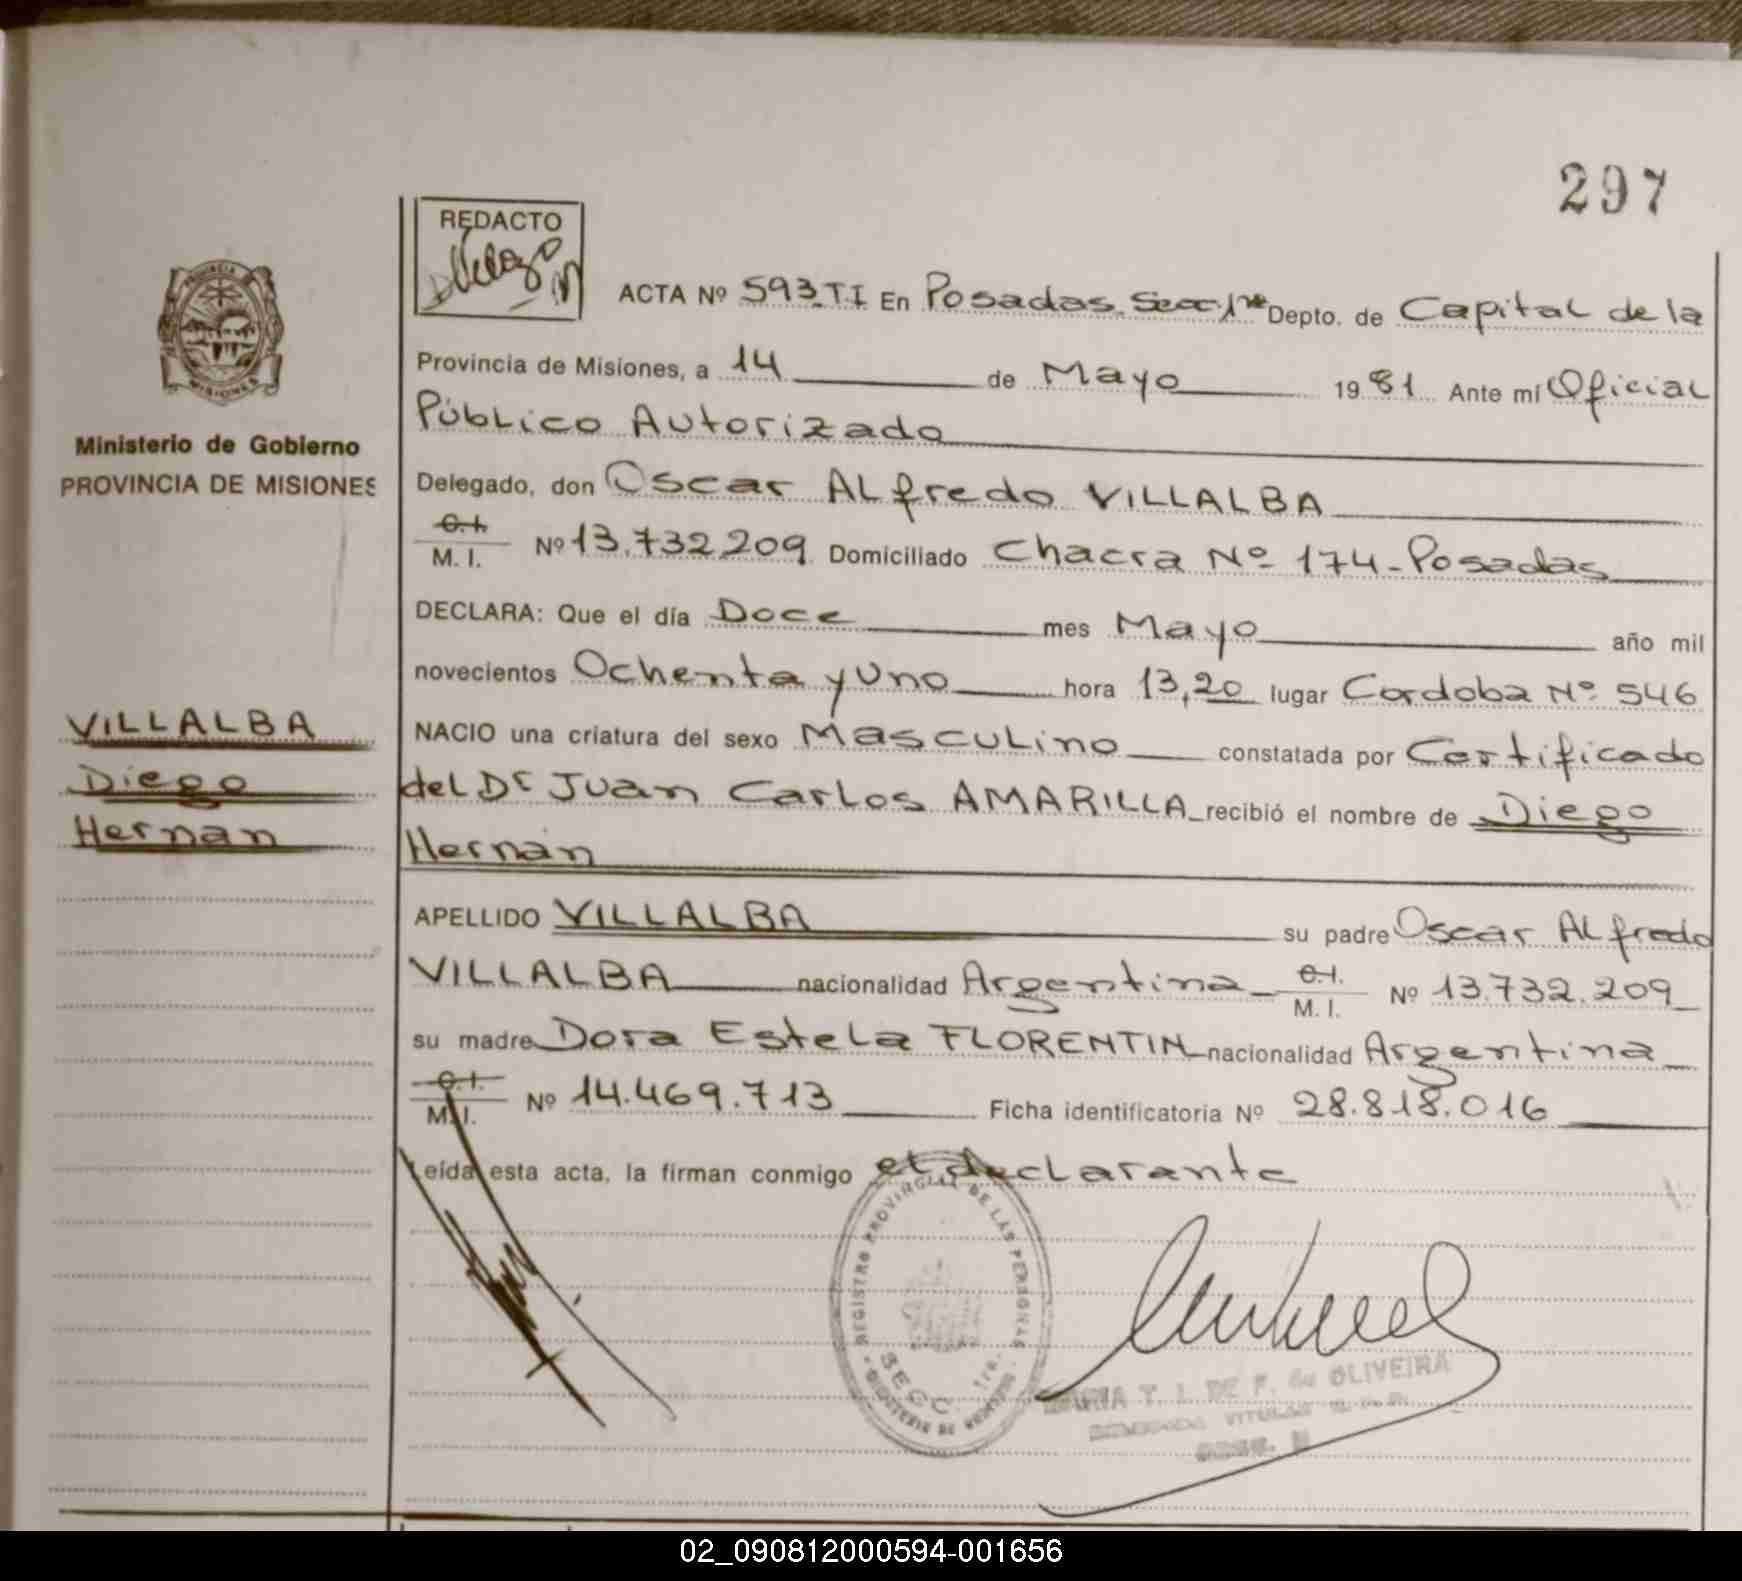 297
REDACTO
ACTA Nº 593-TI En Posadas. Secc. 1ra Depto. de Capital de la
Provincia de Misiones, a 14 de Mayo 1981 Ante mí Oficial
Público Autorizado
PROVINCIA
MISIONES
Ministerio de Gobierno
PROVINCIA DE MISIONES
Delegado, don Oscar Alfredo VILLALBA
C.I.
M. I. Nº 13.732.209 Domiciliado Chacra Nº 174-Posadas
DECLARA: Que el día Doce mes Mayo año mil
novecientos Ochenta y Uno hora 13,20 lugar Cordoba Nº 546
VILLALBA
Diego
Hernan
NACIO una criatura del sexo Masculino constatada por Certificado
del Dr Juan Carlos AMARILLA recibió el nombre de Diego
Hernán
APELLIDO VILLALBA su padre Oscar Alfredo
VILLALBA nacionalidad Argentina C.I. M. I. Nº 13.732.209
su madre Dora Estela FLORENTIN nacionalidad Argentina
C.I.
M. I. Nº 14.469.713 Ficha identificatoria Nº 28.818.016
Leída esta acta, la firman conmigo el declarante
REGISTRO PROVINCIAL DE LAS PERSONAS
SECC. 1ra.
T. I. DE F. de OLIVEIRA
02_090812000594-001656